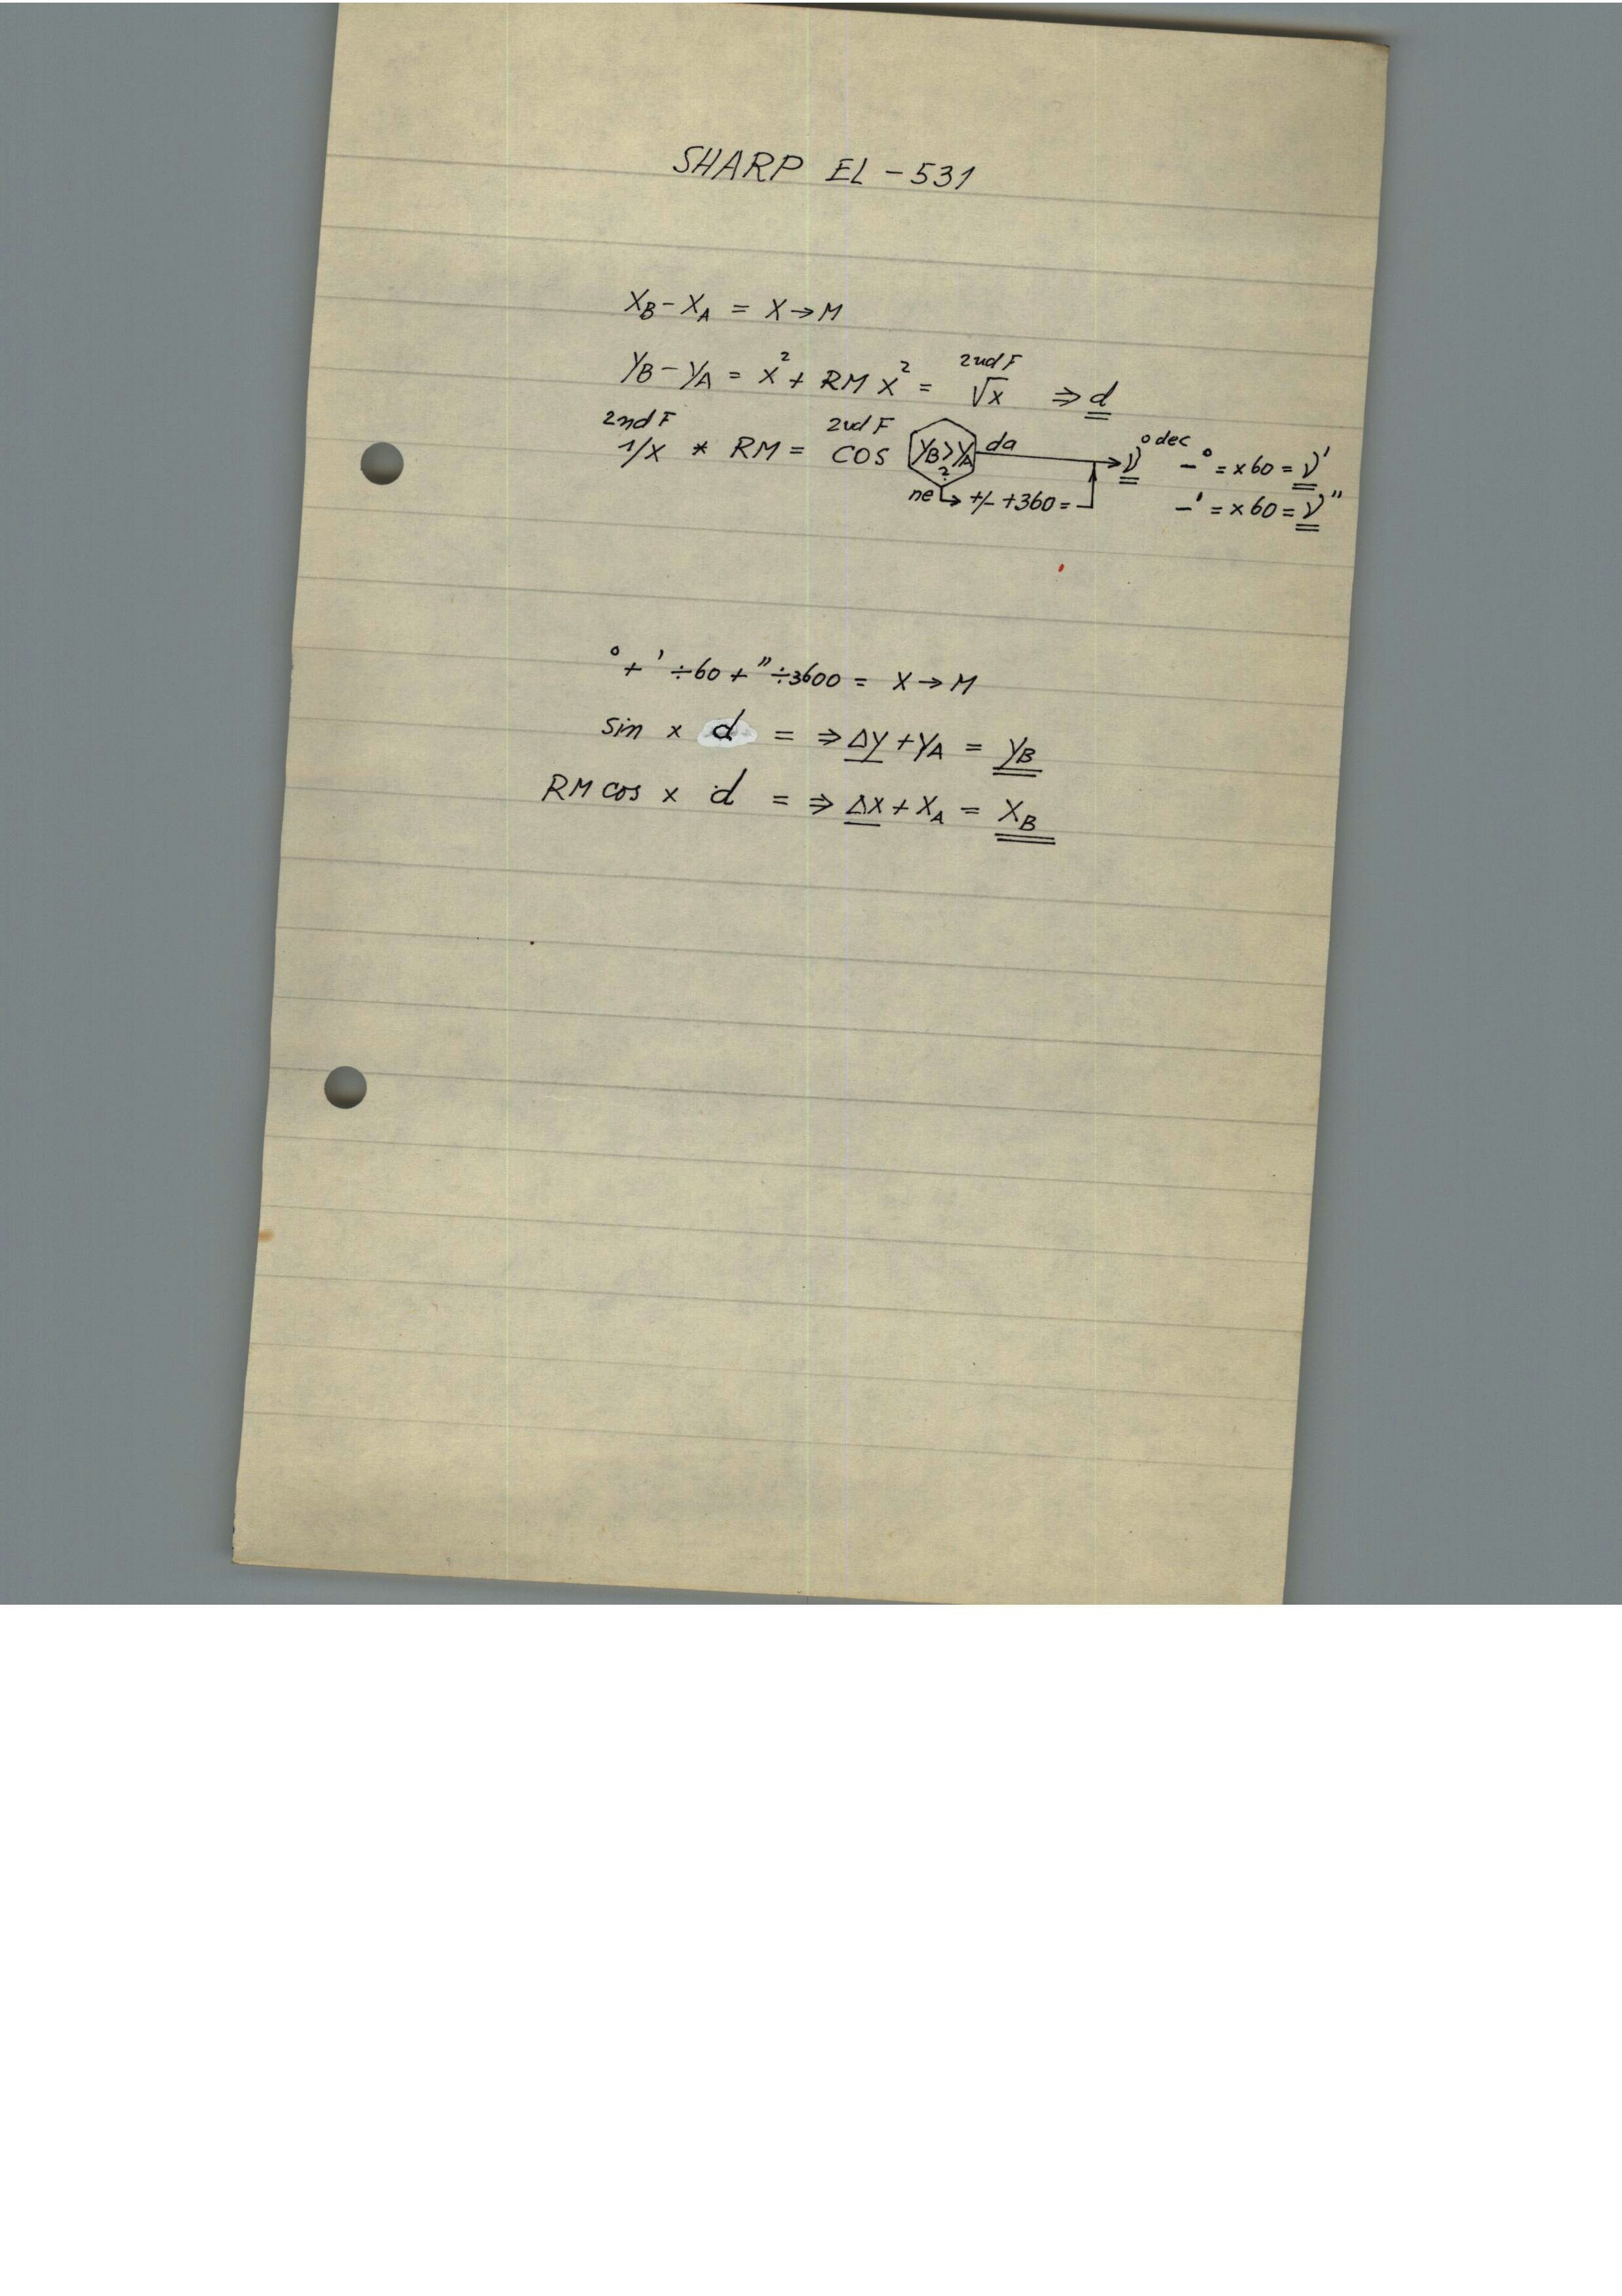 SHARP EL-531
X_B - X_A = X→M
Y_B - Y_A = X² + RM X² = 2ndF √x ⇒ d
2ndF 1/X * RM = 2ndF COS Y_B > Y_A ? da → ν° dec -° = x60 = ν'
ne ↳ +/- +360 = -' = x60 = ν"
° + ' ÷60 + " ÷3600 = X→M
sin x d = ⇒ Δy + Y_A = Y_B
RM cos x d = ⇒ Δx + X_A = X_B